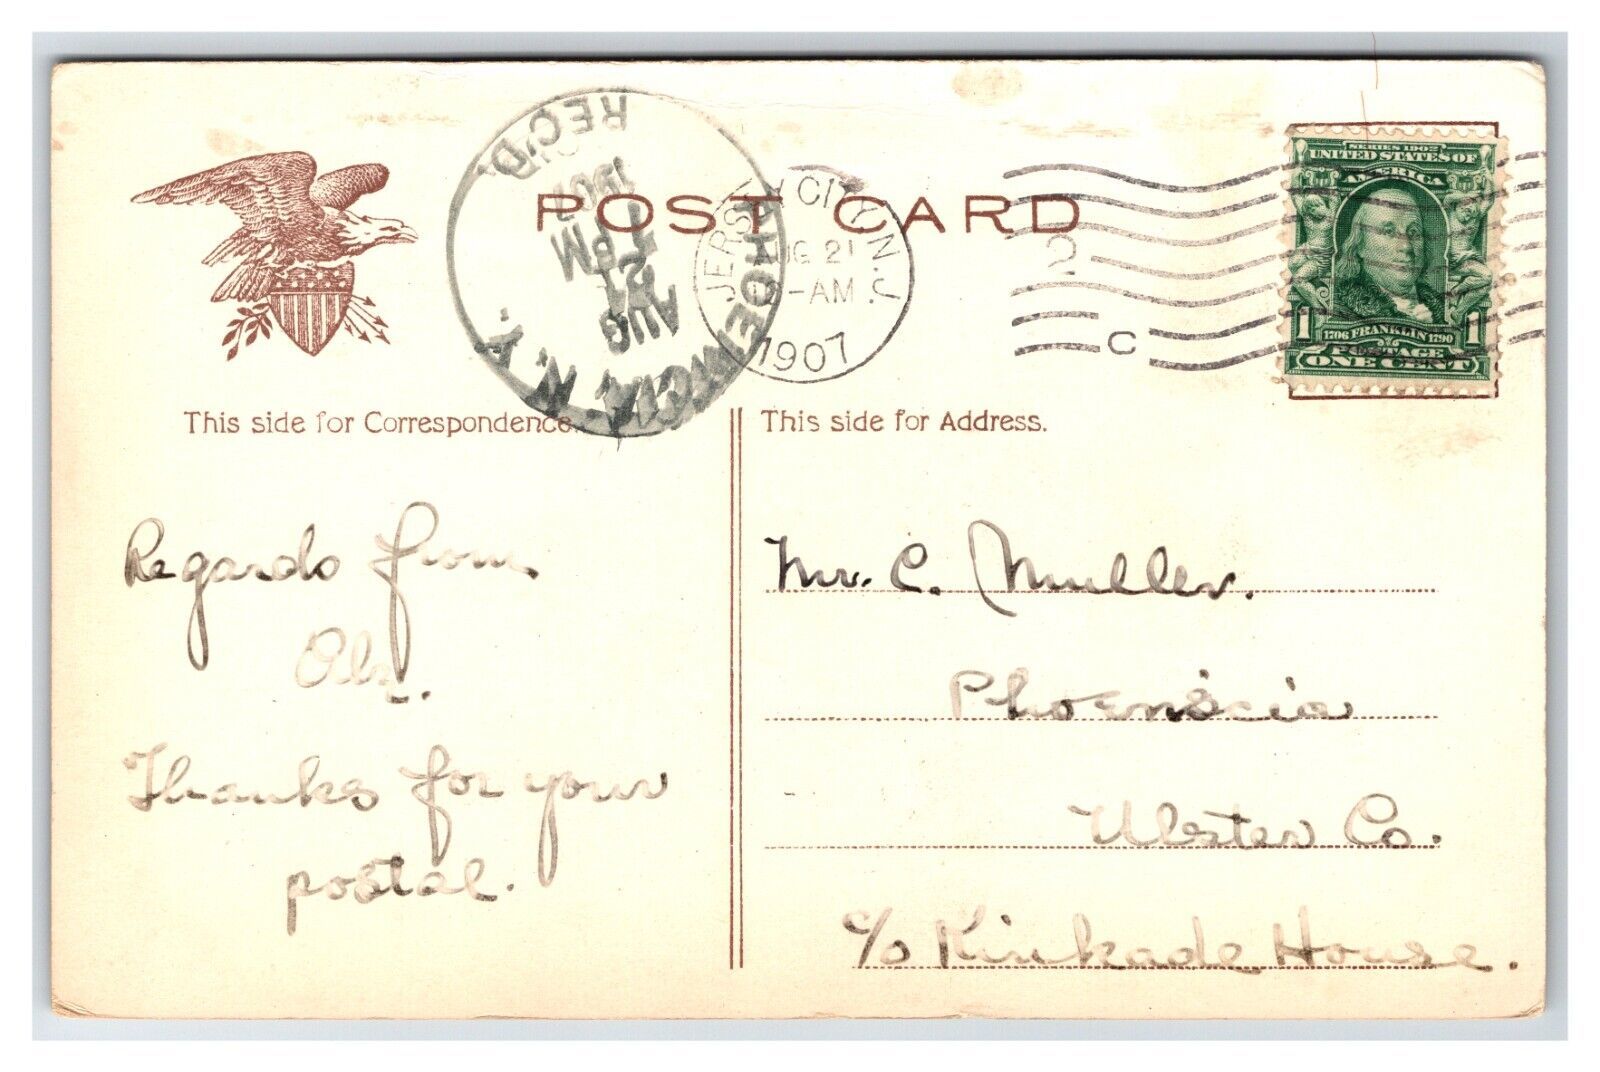 POST CARD
PHOENICIA, N.Y.
AUG
21
6 PM
1907
REC'D.
JERSEY CITY, N.J.
AUG 21
-AM
1907
2
C
SERIES 1902
UNITED STATES OF
AMERICA
1706 FRANKLIN 1790
1 1
POSTAGE
ONE CENT
This side for Correspondence.
Regards from
Thanks for your
postal.
This side for Address.
Mr. C. Muller.
Phoenicia
Ulster Co.
c/o Kinkade House.